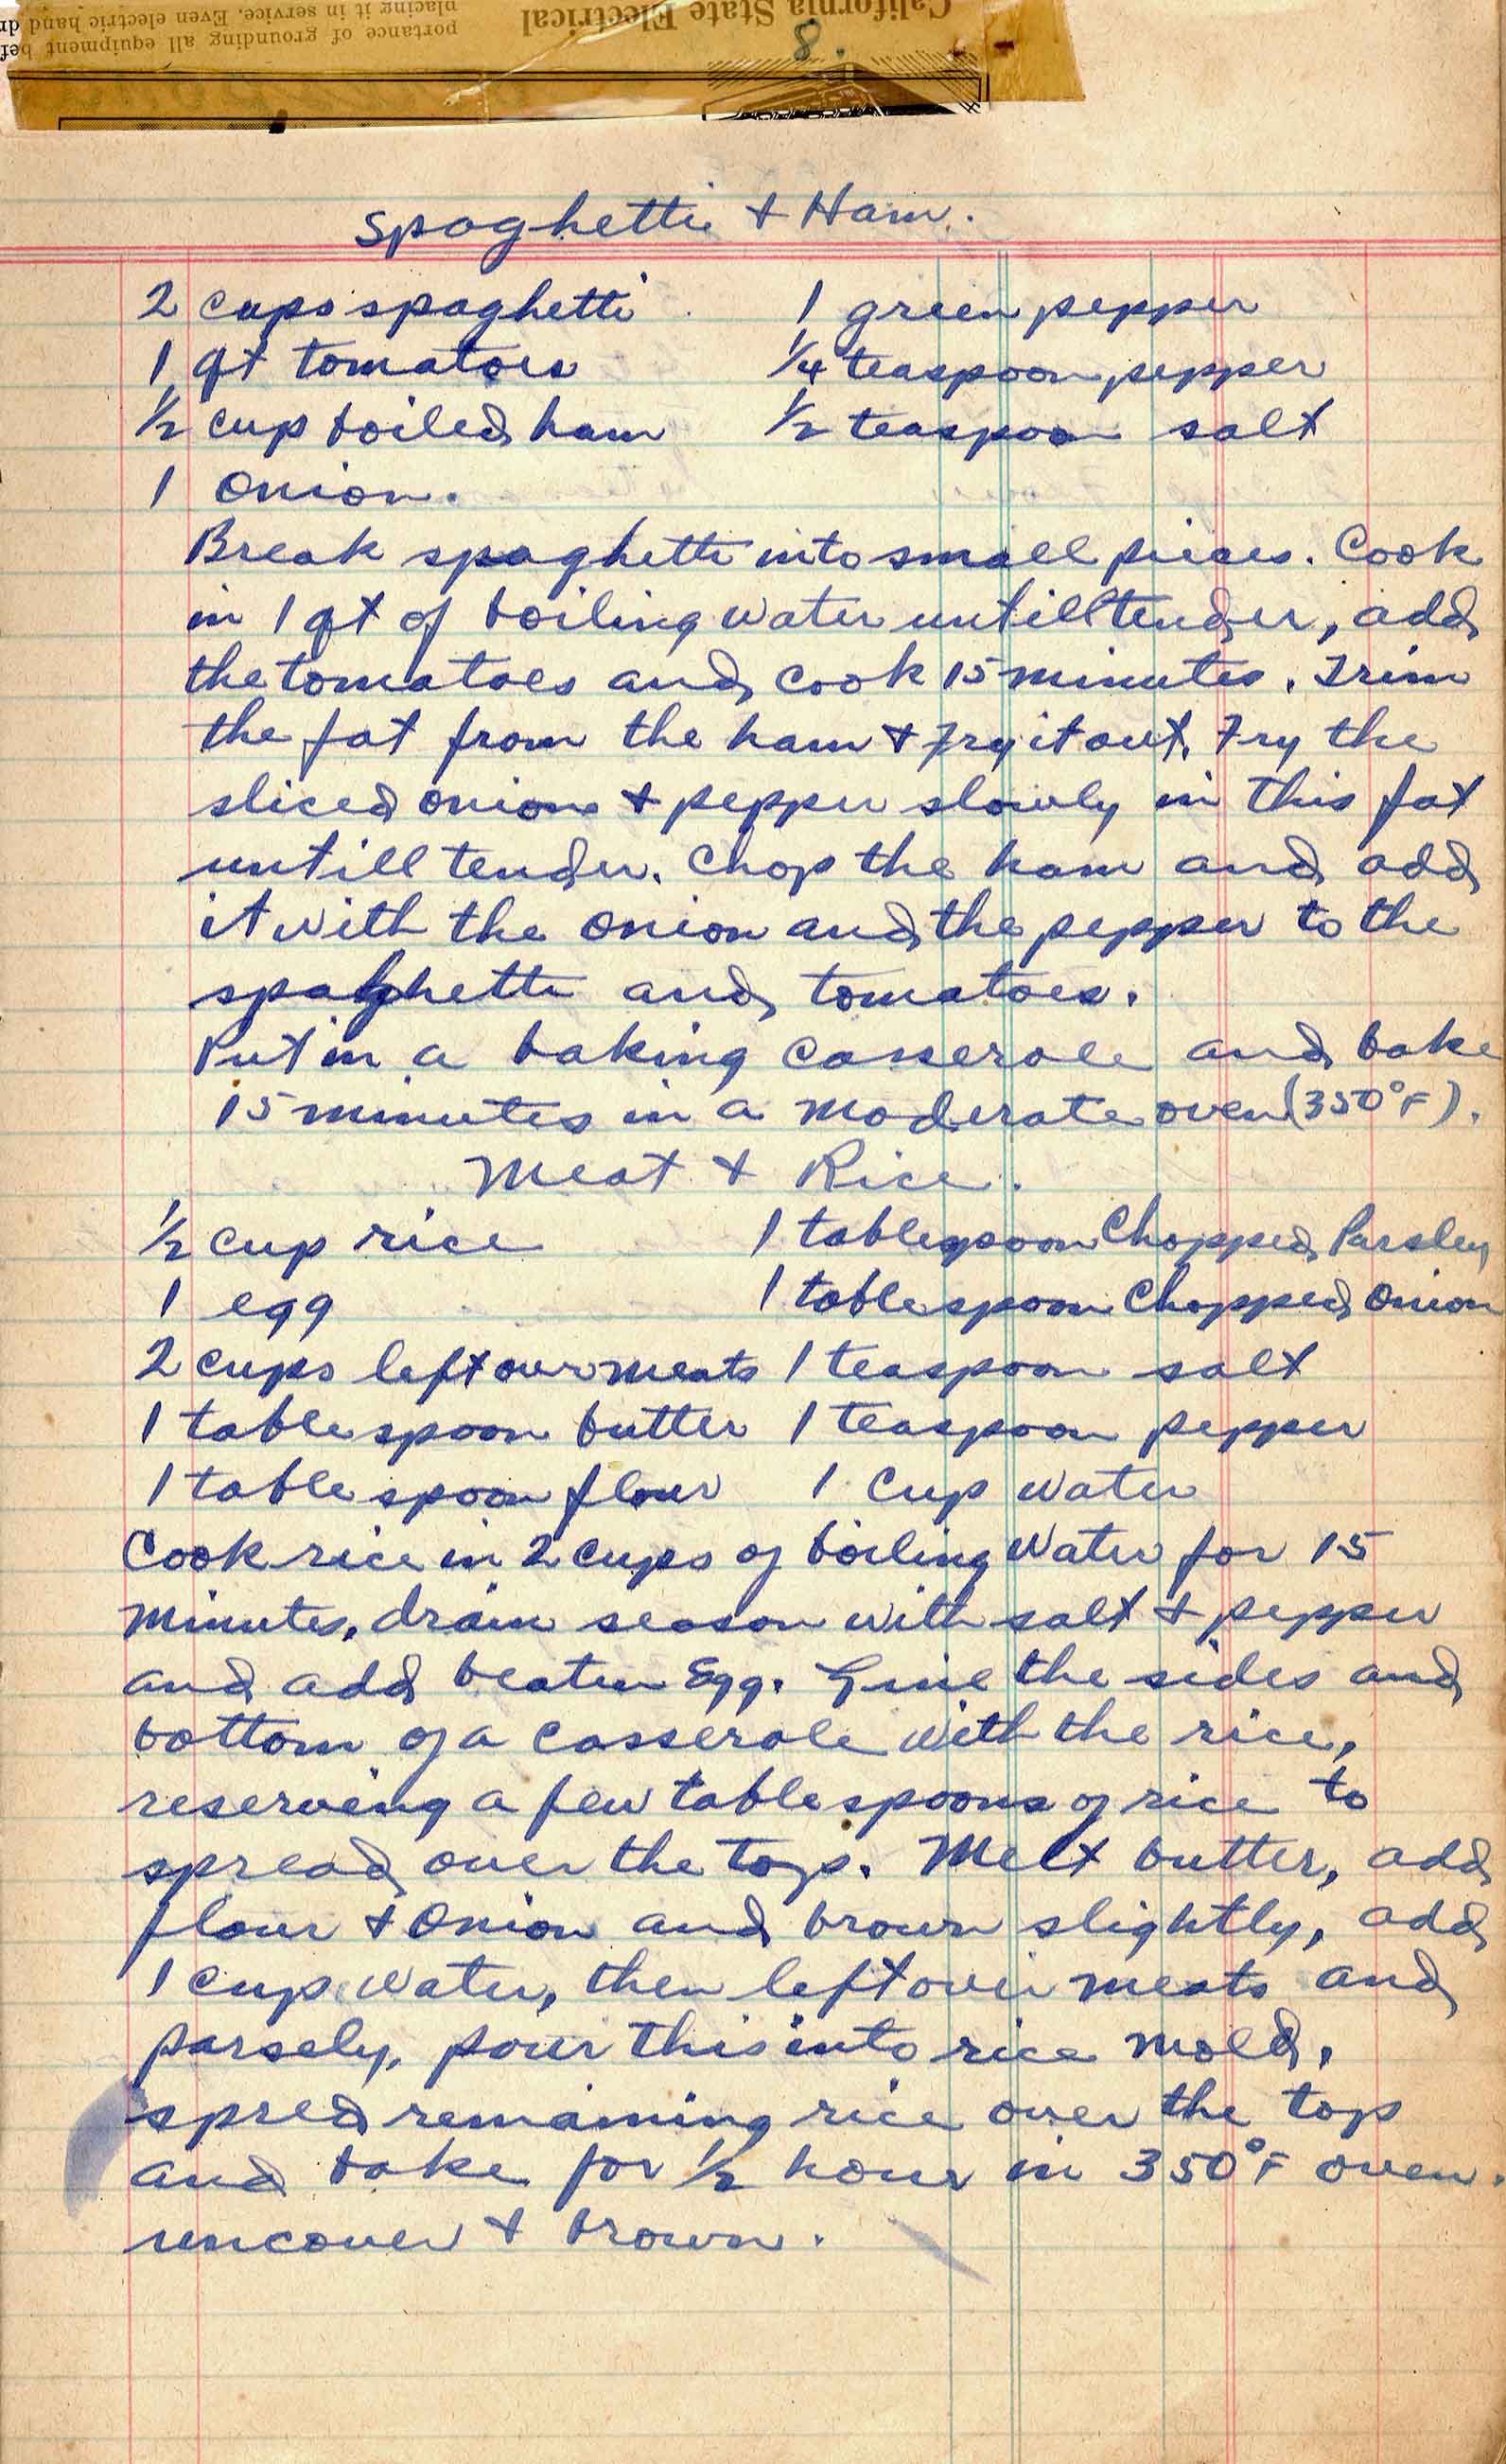 placing it in service. Even electric hand dr
portance of grounding all equipment bef
California State Electrical
8
Spaghetti + Ham.
2 cups spaghetti 1 green pepper
1 qt tomatoes 1/4 teaspoon pepper
1/2 cup boiled ham 1/2 teaspoon salt
1 onion.
Break spaghetti into small pieces. Cook
in 1 qt of boiling water untill tender, add
the tomatoes and cook 15 minutes. Trim
the fat from the ham + fry it out. Fry the
sliced onions + pepper slowly in this fat
untill tender. Chop the ham and add
it with the onion and the pepper to the
spaghetti and tomatoes.
Put in a baking casserole and bake
15 minutes in a moderate oven (350°F).
Meat + Rice.
1/2 cup rice 1 tablespoon Chopped Parsley
1 egg 1 tablespoon Chopped Onion
2 cups leftover meats 1 teaspoon salt
1 tablespoon butter 1 teaspoon pepper
1 tablespoon flour 1 Cup water
Cook rice in 2 cups of boiling water for 15
minutes, drain season with salt + pepper
and add beaten Egg. Line the sides and
bottom of a casserole with the rice,
reserving a few tablespoons of rice to
spread over the top. Melt butter, add
flour + Onion and brown slightly, add
1 cup water, then leftover meats and
parsely, pour this into rice mold,
spred remaining rice over the top
and bake for 1/2 hour in 350°F oven.
uncover + brown.